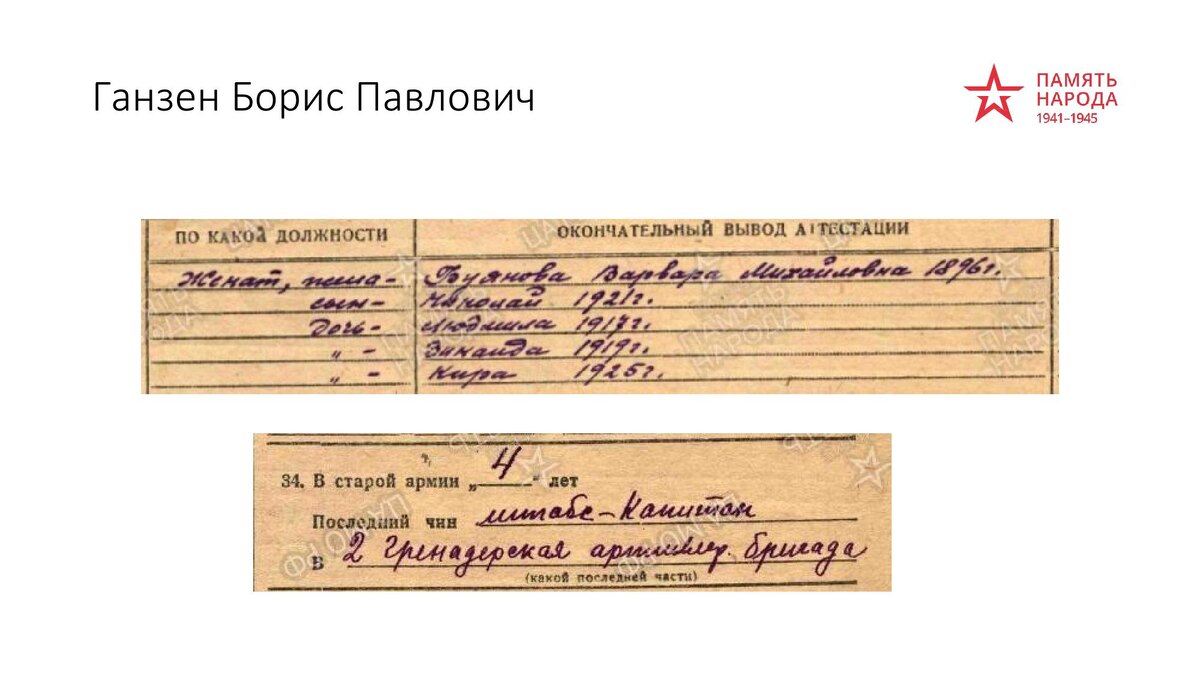 Ганзен Борис Павлович
ПАМЯТЬ
НАРОДА
1941–1945
ПО КАКОЙ ДОЛЖНОСТИ
ОКОНЧАТЕЛЬНЫЙ ВЫВОД АТТЕСТАЦИИ
Женат, жена- Буянова Варвара Михайловна 1896г.
сын- Николай 1921г.
Дочь- Людмила 1917г.
„ - Зинаида 1919г.
„ - Кира 1925г.
34. В старой армии „4“ лет
Последний чин штабс-Капитан
В 2 Гренадерская артиллер. бригада
(какой последней части)